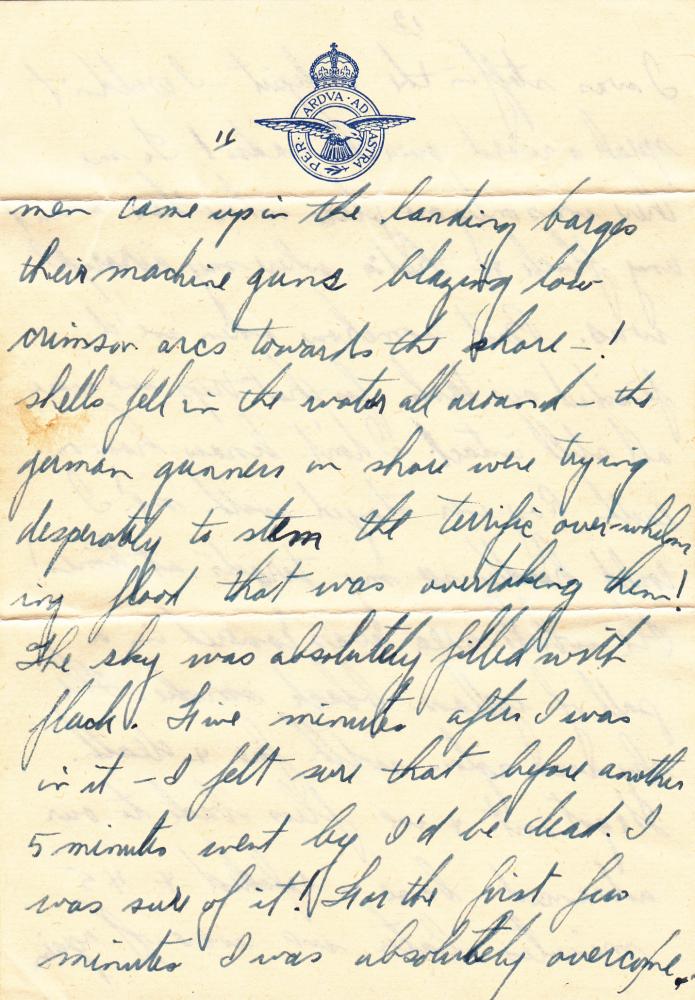 PER · ARDVA · AD · ASTRA
11
men came up in the landing barges
their machine guns blazing low
crimson arcs towards the shore - !
shells fell in the water all around - the
german gunners on shore were trying
desperately to stem the terrific over-whelm
ing flood that was overtaking them!
The sky was absolutely filled with
flack. Five minutes after I was
in it - I felt sure that before another
5 minutes went by I'd be dead. I
was sure of it! For the first few
minutes I was absolutely overcome,